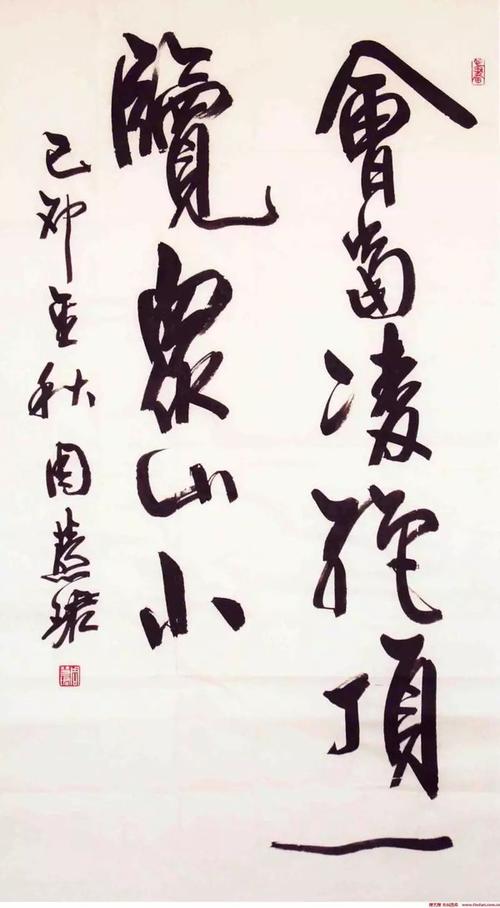 會當凌絕頂一
覽眾山小
己卯金秋周慧珺